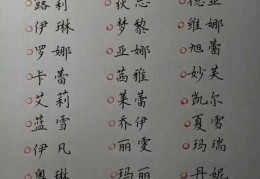 路莉 狄思 德亚
伊琳 梦黎 维娜
罗娜 亚娜 旭蕾
卡蕾 茜雅 妙芙
艾莉 莱蕾 凯尔
蓝雪 乔伊 夏雪
伊凡 丽雯 玛瑞
奥琳 玛丽 丹妮